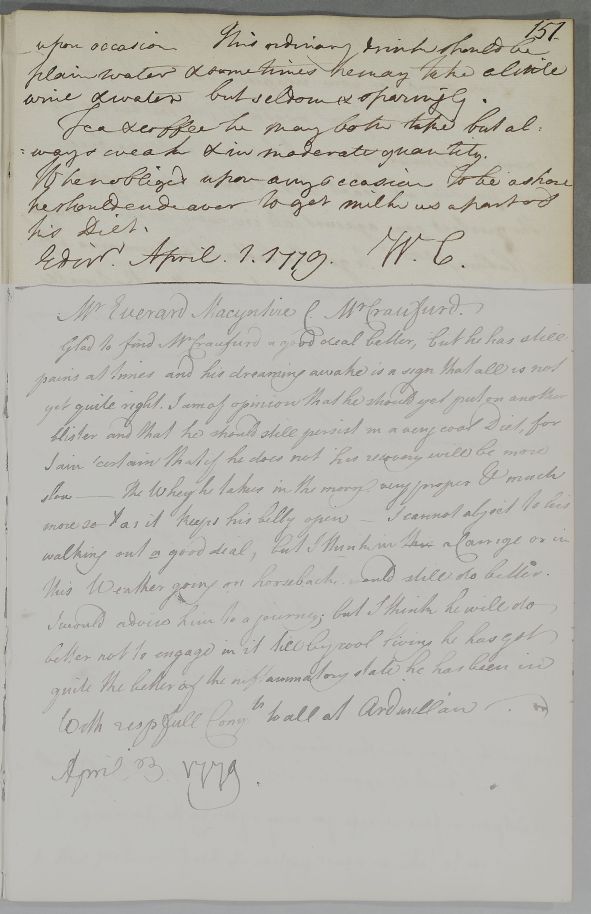 151.
upon occasion His ordinary drink should be
plain water & sometimes he may take a little
wine & water but seldom & sparingly.
Tea & coffee he may both take but al:
:ways weak & in moderate quantity.
When obliged upon any occasion to be ashore
he should endeavor to get milk as a part of
his Diet.
Edinr. April. 1. 1779. W. C.
Mr Everard Macyntire C. Mr Craufurd.
Glad to find Mr Craufurd a good deal better, but he has still
pains at times and his dreaming awake is a sign that all is not
yet quite right. I am of opinion that he should yet put on another
blister and that he should still persist in a very cool Diet, for
I am certain that if he does not his recovery will be more
slow — The Whey he takes in the morng very proper & much
more so as it keeps his belly open — I cannot object to his
walking out a good deal, but I think in a Carriage or in
this Weather going on horseback would still do better.
I would advise him to a journey; but I think he will do
better not to engage in it till by cool living he has got
quite the better of the inflammatory state he has been in
With respfull Comps to all at Ardmillan
April 1779.